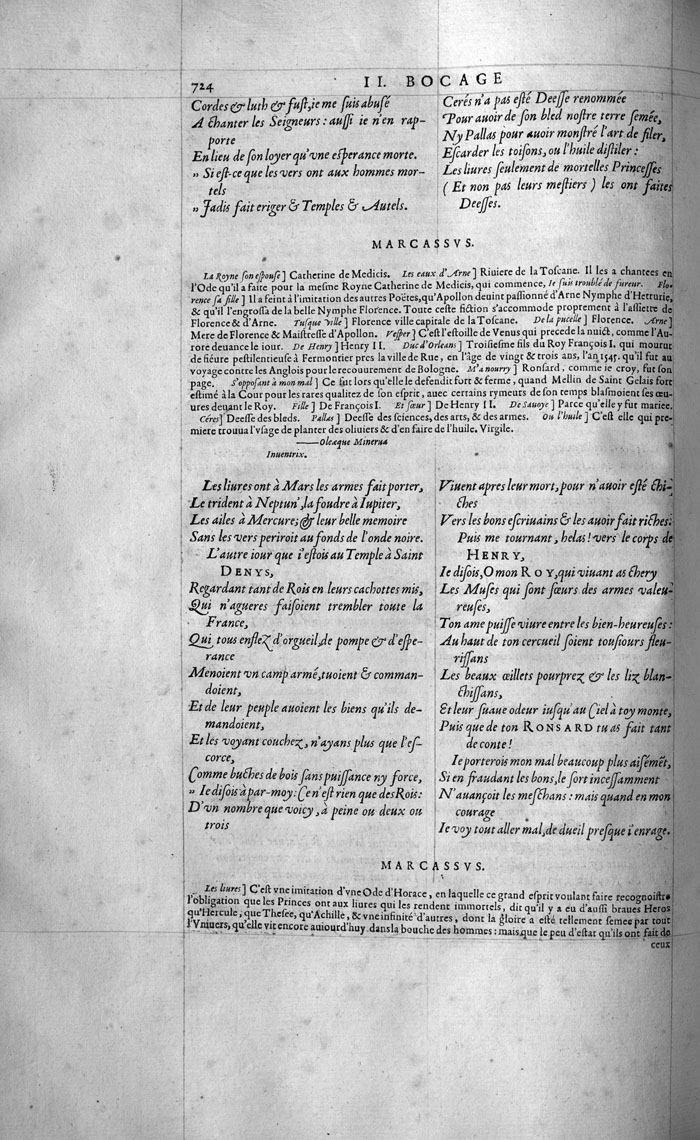 724
II. BOCAGE
Cordes & luth & fust, ie me suis abusé
A chanter les Seigneurs : aussi ie n'en rap-
porte
En lieu de son loyer qu'vne esperance morte.
„ Si est-ce que les vers ont aux hommes mor-
tels
„ Jadis fait eriger & Temples & Autels.
Cerés n'a pas esté Deesse renommée
Pour auoir de son bled nostre terre semée,
Ny Pallas pour auoir monstré l'art de filer,
Escarder les toisons, ou l'huile distiler :
Les liures seulement de mortelles Princesses
( Et non pas leurs mestiers ) les ont faites
Deesses.
MARCASSVS.
La Royne son espouse ] Catherine de Medicis. Les eaux d'Arne ] Riuiere de la Toscane. Il les a chantees en
l'Ode qu'il a faite pour la mesme Royne Catherine de Medicis, qui commence, Ie suis troublé de fureur. Flo-
rence sa fille ] Il a feint à l'imitation des autres Poëtes, qu'Apollon deuint passionné d'Arne Nymphe d'Hetrurie,
& qu'il l'engrossa de la belle Nymphe Florence. Toute ceste fiction s'accommode proprement à l'assiette de
Florence & d'Arne. Tusque ville ] Florence ville capitale de la Toscane. De la pucelle ] Florence. Arne ]
Mere de Florence & Maistresse d'Apollon. Vesper ] C'est l'estoille de Venus qui precede la nuict, comme l'Au-
rore deuance le iour. De Henry ] Henry II. Duc d'Orleans ] Troisiesme fils du Roy François I. qui mourut
de fiéure pestilentieuse à Fermontier pres la ville de Rue, en l'âge de vingt & trois ans, l'an 1545. qu'il fut au
voyage contre les Anglois pour le recouurement de Bologne. M'a nourry ] Ronsard, comme ie croy, fut son
page. S'opposant à mon mal ] Ce fut lors qu'elle le defendit fort & ferme, quand Mellin de Saint Gelais fort
estimé à la Cour pour les rares qualitez de son esprit, auec certains rymeurs de son temps blasmoient ses œu-
ures deuant le Roy. Fille ] De François I. Et sœur ] De Henry II. De Sauoye ] Parce qu'elle y fut mariee.
Cérés ] Deesse des bleds. Pallas ] Deesse des sciences, des arts, & des armes. Ou l'huile ] C'est elle qui pre-
miere trouua l'vsage de planter des oliuiers & d'en faire de l'huile. Virgile.
——Oleaque Minerua
Inuentrix.
Les liures ont à Mars les armes fait porter,
Le trident à Neptun', la foudre à Iupiter,
Les ailes à Mercure; & leur belle memoire
Sans les vers periroit au fonds de l'onde noire.
L'autre iour que i'estois au Temple à Saint
DENYS,
Regardant tant de Rois en leurs cachottes mis,
Qui n'agueres faisoient trembler toute la
France,
Qui tous enflez d'orgueil, de pompe & d'espe-
rance
Menoient vn camp armé, tuoient & comman-
doient,
Et de leur peuple auoient les biens qu'ils de-
mandoient,
Et les voyant couchez, n'ayans plus que l'es-
corce,
Comme buches de bois sans puissance ny force,
„ Ie disois à par-moy : Ce n'est rien que des Rois :
D'vn nombre que voicy, à peine ou deux ou
trois
Viuent apres leur mort, pour n'auoir esté chi-
ches
Vers les bons escriuains & les auoir fait riches.
Puis me tournant, helas ! vers le corps de
HENRY,
Ie disois, O mon ROY, qui viuant as chery
Les Muses qui sont sœurs des armes valeu-
reuses,
Ton ame puisse viure entre les bien-heureuses :
Au haut de ton cercueil soient tousiours fleu-
rissans
Les beaux œillets pourprez & les liz blan-
chissans,
Et leur suaue odeur iusqu'au Ciel à toy monte,
Puis que de ton RONSARD tu as fait tant
de conte !
Ie porterois mon mal beaucoup plus aisémẽt,
Si en fraudant les bons, le sort incessamment
N'auançoit les meschans : mais quand en mon
courage
Ie voy tout aller mal, de dueil presque i'enrage.
MARCASSVS.
Les liures ] C'est vne imitation d'vne Ode d'Horace, en laquelle ce grand esprit voulant faire recognoistre
l'obligation que les Princes ont aux liures qui les rendent immortels, dit qu'il y a eu d'aussi braues Heros
qu'Hercule, que Thesee, qu'Achille, & vne infinité d'autres, dont la gloire a esté tellement semee par tout
l'Vniuers, qu'elle vit encore auiourd'huy dans la bouche des hommes : mais que le peu d'estat qu'ils ont fait de
ceux